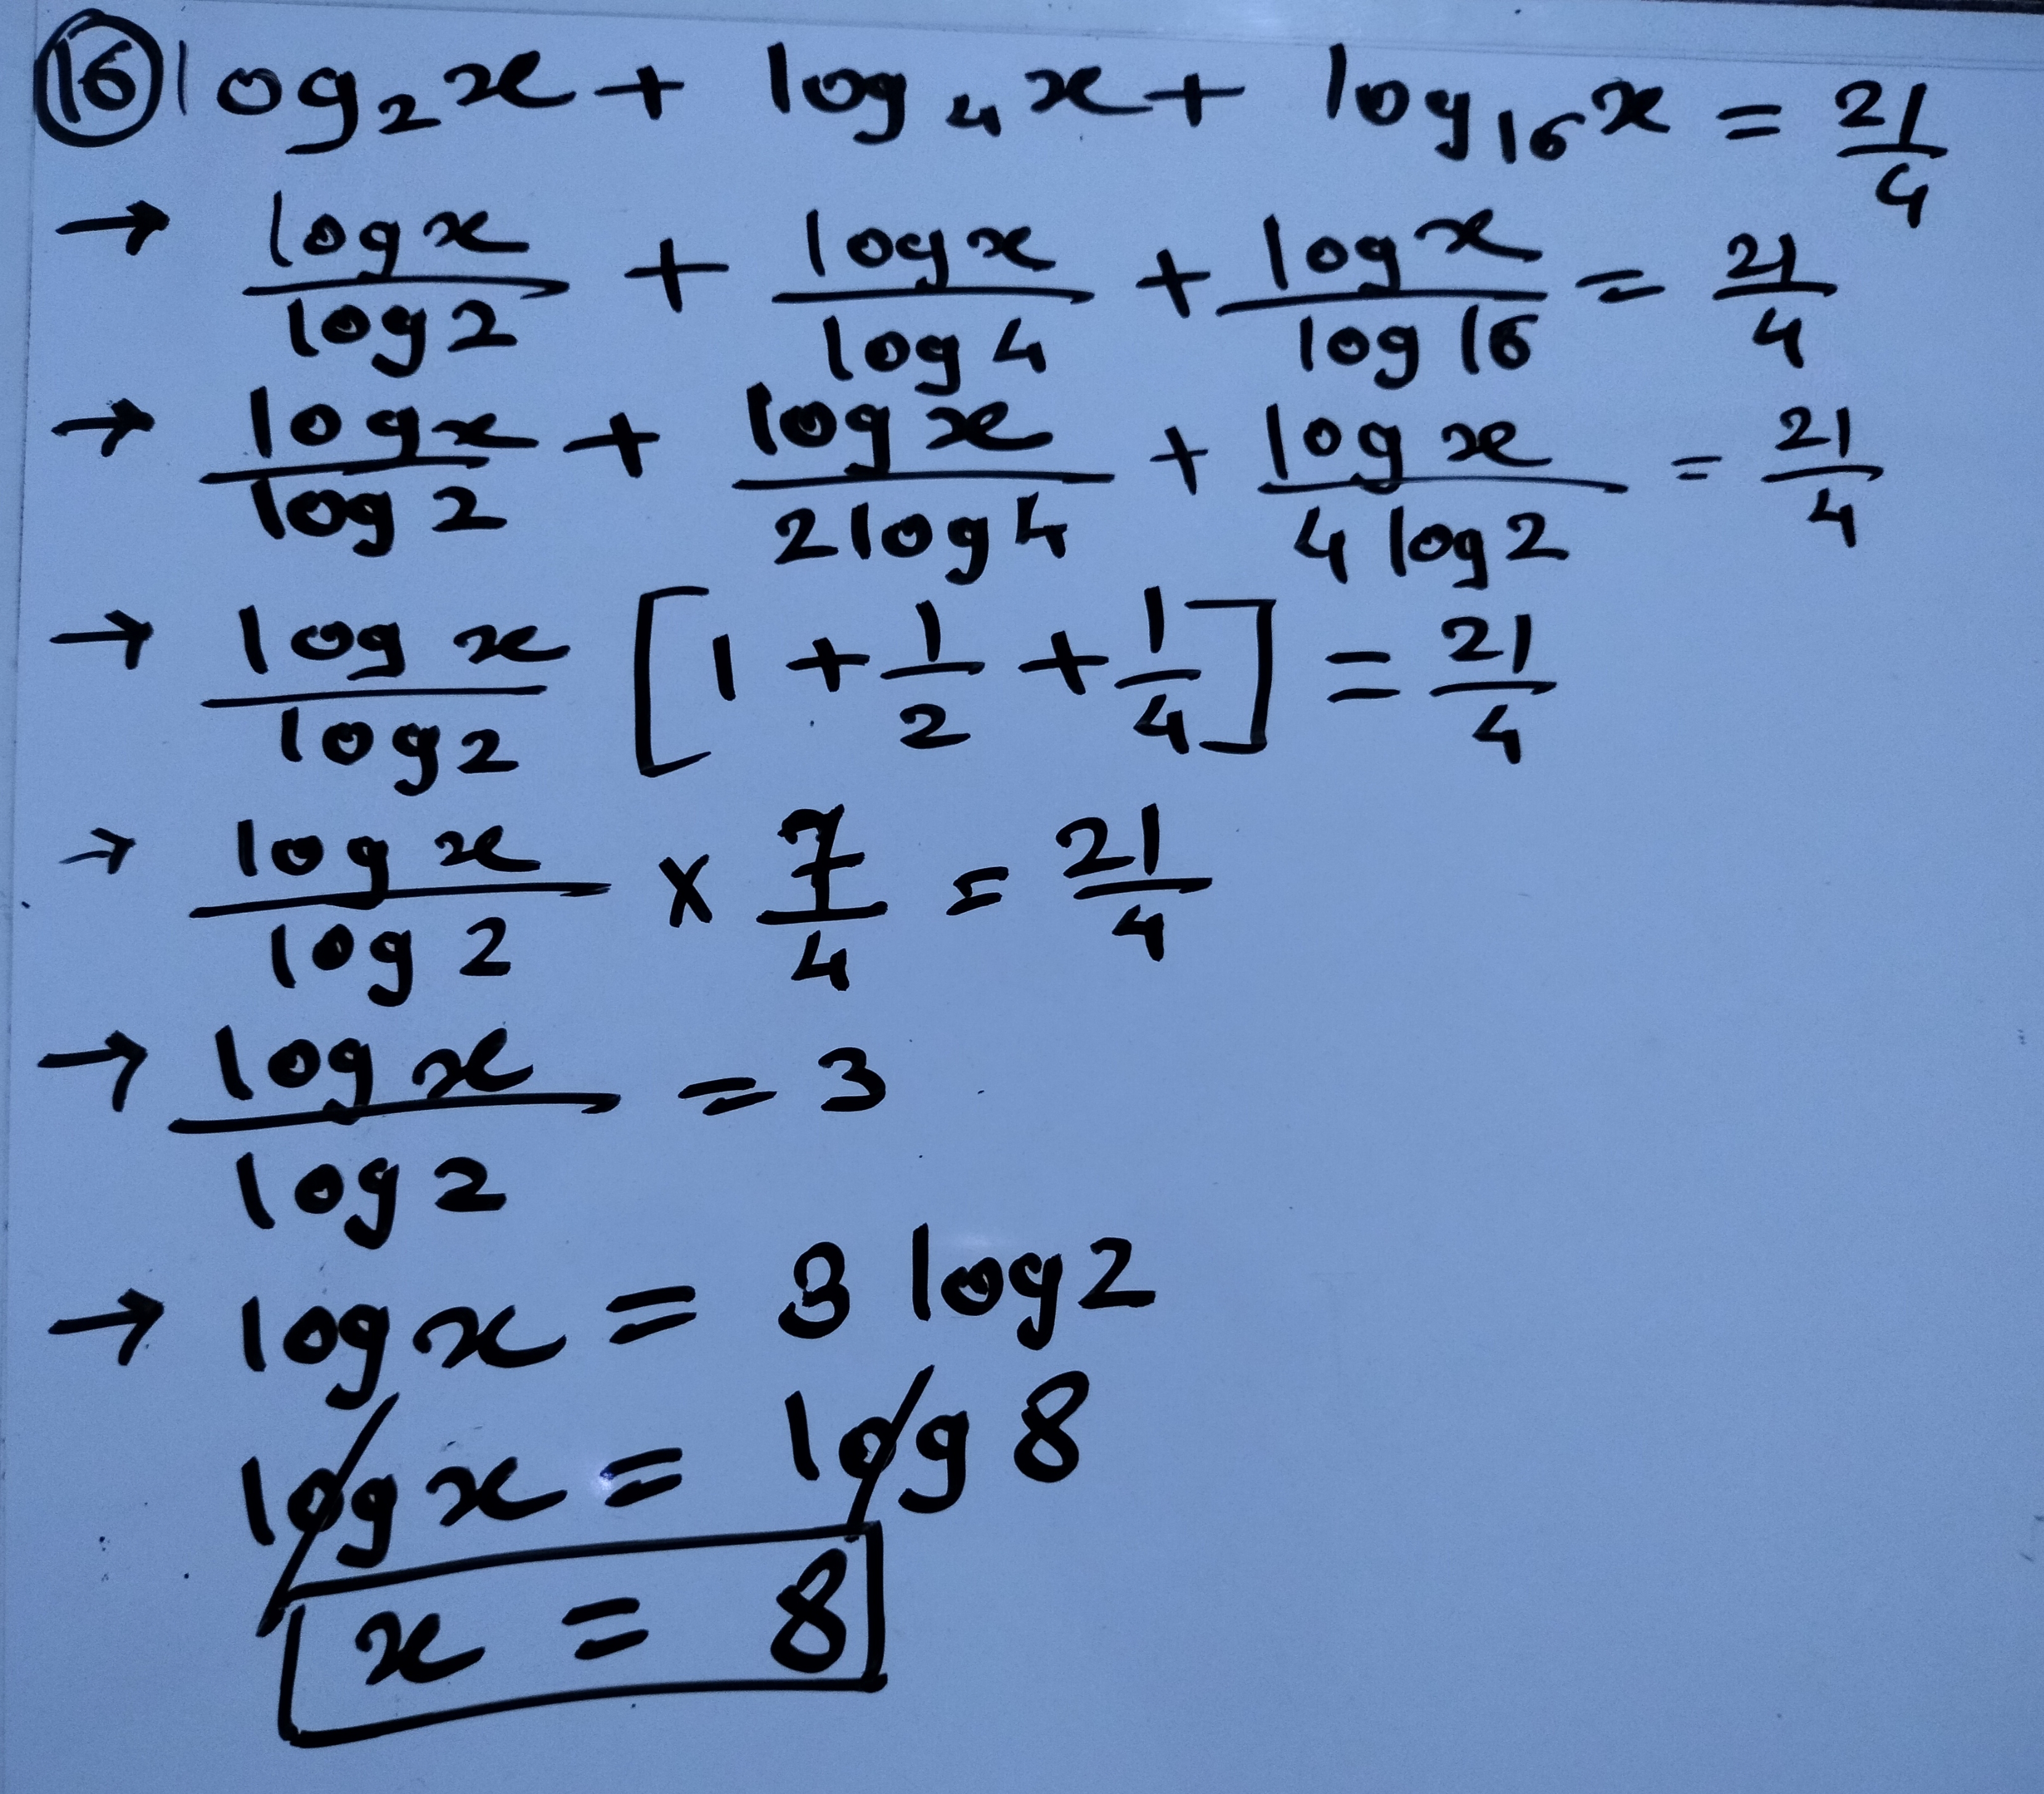 (16) log₂x + log₄x + log₁₆x = 21/4
→ logx/log2 + logx/log4 + logx/log16 = 21/4
→ logx/log2 + logx/2log4 + logx/4log2 = 21/4
→ logx/log2 [1 + 1/2 + 1/4] = 21/4
→ logx/log2 × 7/4 = 21/4
→ logx/log2 = 3
→ logx = 3 log2
logx = log8
x = 8